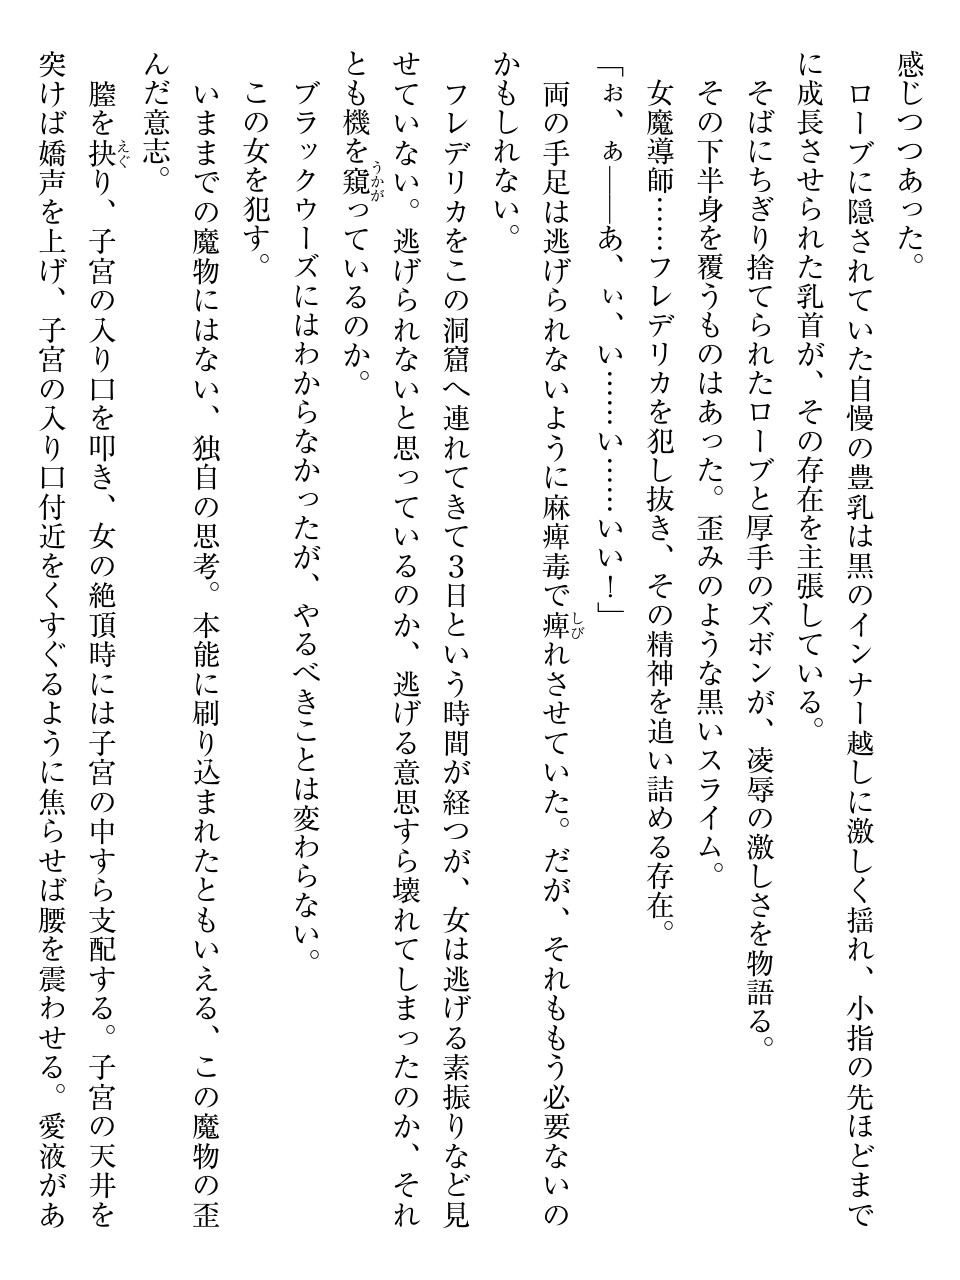 感じつつあった。
　ローブに隠されていた自慢の豊乳は黒のインナー越しに激しく揺れ、小指の先ほどまで
に成長させられた乳首が、その存在を主張している。
　そばにちぎり捨てられたローブと厚手のズボンが、凌辱の激しさを物語る。
　その下半身を覆うものはあった。歪みのような黒いスライム。
　女魔導師……フレデリカを犯し抜き、その精神を追い詰める存在。
「ぉ、ぁ――あ、ぃ、い……い……いい！」
　両の手足は逃げられないように麻痺毒で痺しびれさせていた。だが、それももう必要ないの
かもしれない。
　フレデリカをこの洞窟へ連れてきて３日という時間が経つが、女は逃げる素振りなど見
せていない。逃げられないと思っているのか、逃げる意思すら壊れてしまったのか、それ
とも機を窺うかがっているのか。
　ブラックウーズにはわからなかったが、やるべきことは変わらない。
　この女を犯す。
　いままでの魔物にはない、独自の思考。本能に刷り込まれたともいえる、この魔物の歪
んだ意志。
　膣を抉えぐり、子宮の入り口を叩き、女の絶頂時には子宮の中すら支配する。子宮の天井を
突けば嬌声を上げ、子宮の入り口付近をくすぐるように焦らせば腰を震わせる。愛液があ